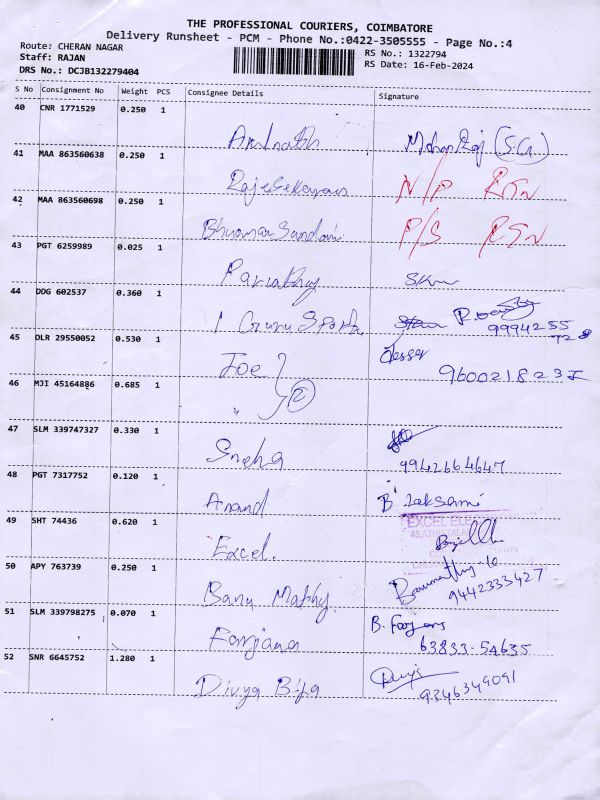 THE PROFESSIONAL COURIERS, COIMBATORE
Delivery Runsheet - PCM - Phone No.:0422-3505555 - Page No.:4
Route: CHERAN NAGAR
RS No.: 1322794
Staff: RAJAN
RS Date: 16-Feb-2024
DRS No.: DCJB132279404
S No Consignment No Weight PCS Consignee Details Signature
40 CNR 1771529 0.250 1
(S.G)
41 MAA 863560638 0.250 1
Rajesekaran N/P RTN
42 MAA 863560698 0.250 1
P/S RTN
43 PGT 6259989 0.025 1
44 DDG 602537 0.360 1
Guru Sports 9994255
728
45 DLR 29550052 0.530 1
Joe
46 MJI 45164886 0.685 1
2
47 SLM 339747327 0.330 1
Sneha 9942664647
48 PGT 7317752 0.120 1
Anand B. Laksami
49 SHT 74436 0.620 1
EXCEL
Excel.
50 APY 763739 0.250 1
Banu Mathy. 9442333427
51 SLM 339798275 0.070 1
Farjana 63833-54635
52 SNR 6645752 1.280 1
Divya 9346349091